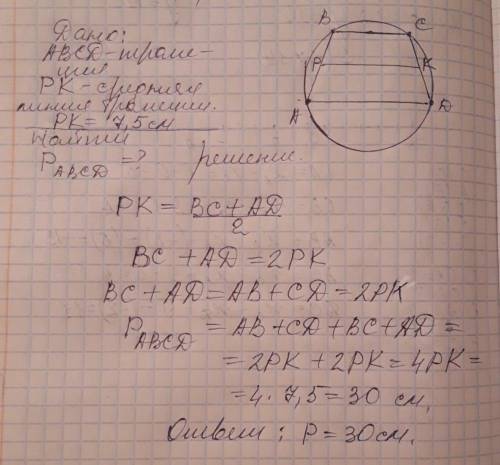 Дано:
ABCD-трапе-
ция
PK-средняя
линия трапеции.
PK= 7,5см
Найти
P_ABCD =?
решение.
B
C
P
K
A
D
PK = BC+AD / 2
BC + AD = 2PK
BC + AD = AB + CD = 2PK
P_ABCD = AB + CD + BC + AD =
= 2PK + 2PK = 4PK =
= 4 · 7,5 = 30 см.
Ответ: P = 30см.